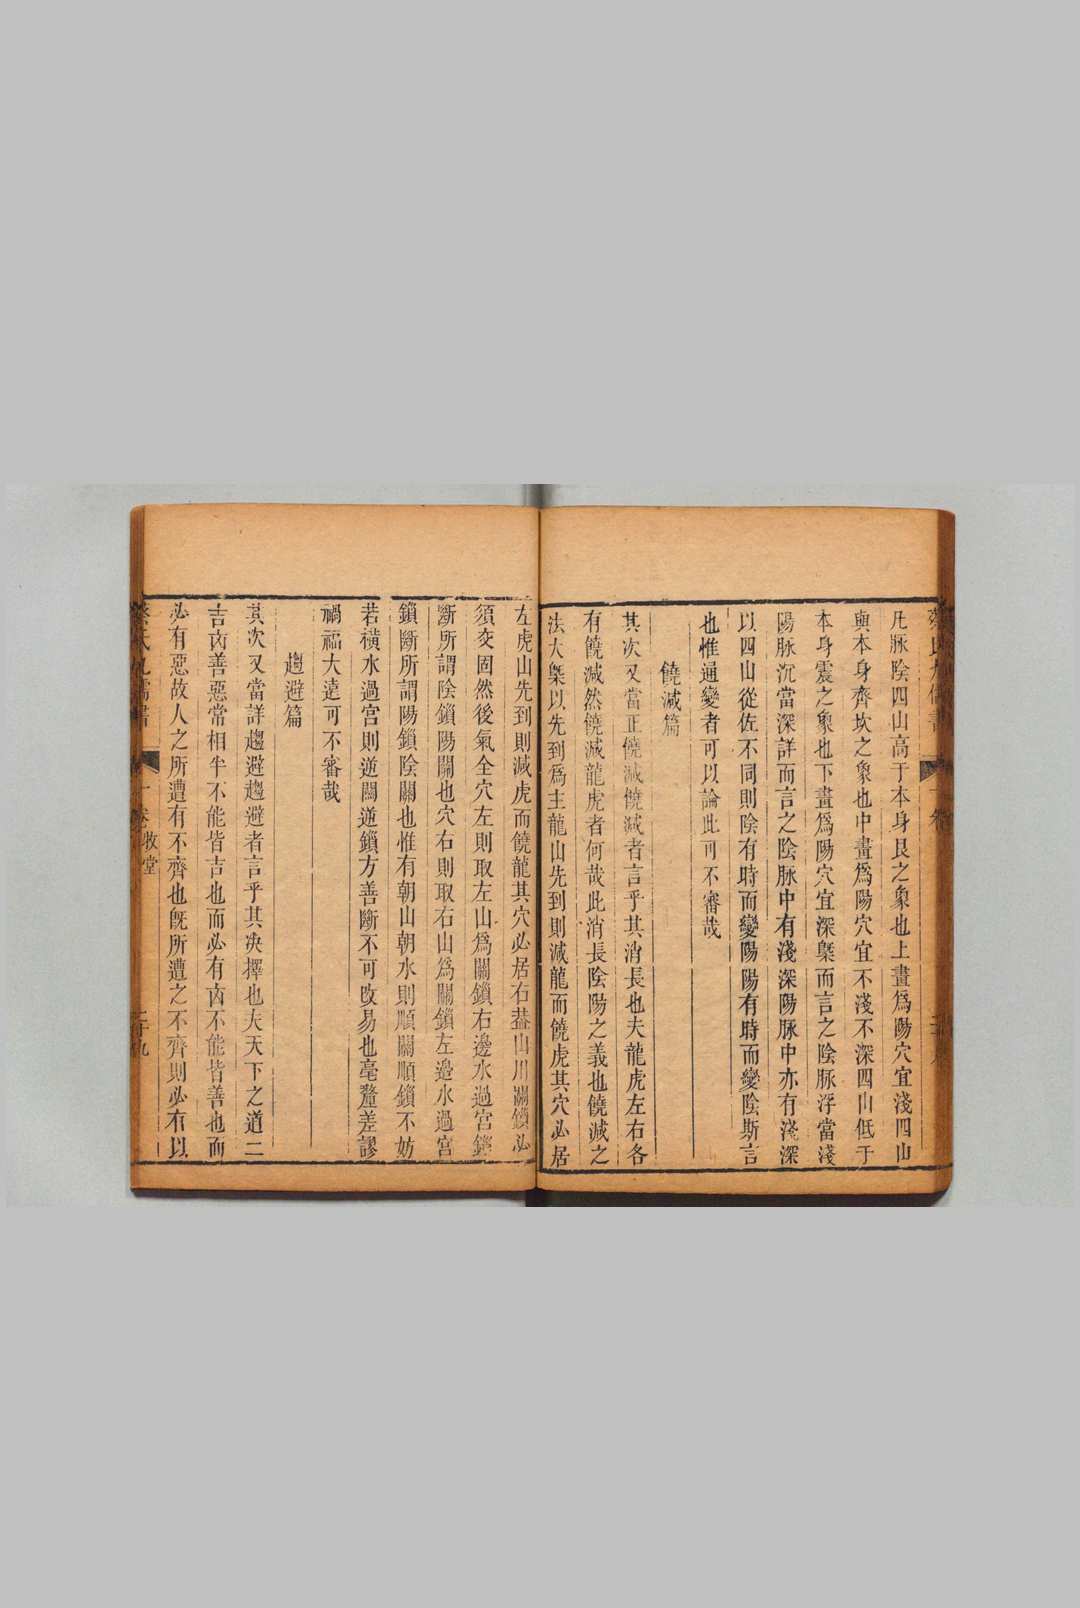 凡脉陰四山高于本身艮之象也上畫爲陽穴宜淺四山
與本身齊坎之象也中畫爲陽穴宜不淺不深四山低于
本身震之象也下畫爲陽穴宜深槩而言之陰脉浮當淺
陽脉沉當深詳而言之陰脉中有淺深陽脉中亦有淺深
以四山從佐不同則陰有時而變陽陽有時而變陰斯言
也惟通變者可以論此可不審哉
饒減篇
其次又當正饒減饒減者言乎其消長也夫龍虎左右各
有饒減然饒減龍虎者何哉此消長陰陽之義也饒減之
法大槩以先到爲主龍山先到則減龍而饒虎其穴必居
左虎山先到則減虎而饒龍其穴必居右葢山川關鎖必
須交固然後氣全穴左則取左山爲關鎖右邊水過宮鎖
斷所謂陰鎖陽關也穴右則取右山爲關鎖左邉水過宮
鎖斷所謂陽鎖陰關也惟有朝山朝水則順關順鎖不妨
若橫水過宮則逆關逆鎖方善斷不可改易也毫釐差謬
禍福大逺可不審哉
趨避篇
其次又當詳趨避趨避者言乎其决擇也夫天下之道二
吉凶善惡常相半不能皆吉也而必有凶不能皆善也而
必有惡故人之所遭有不齊也旣所遭之不齊則必有以
蔡氏九儒書 十卷 牧堂 二十九